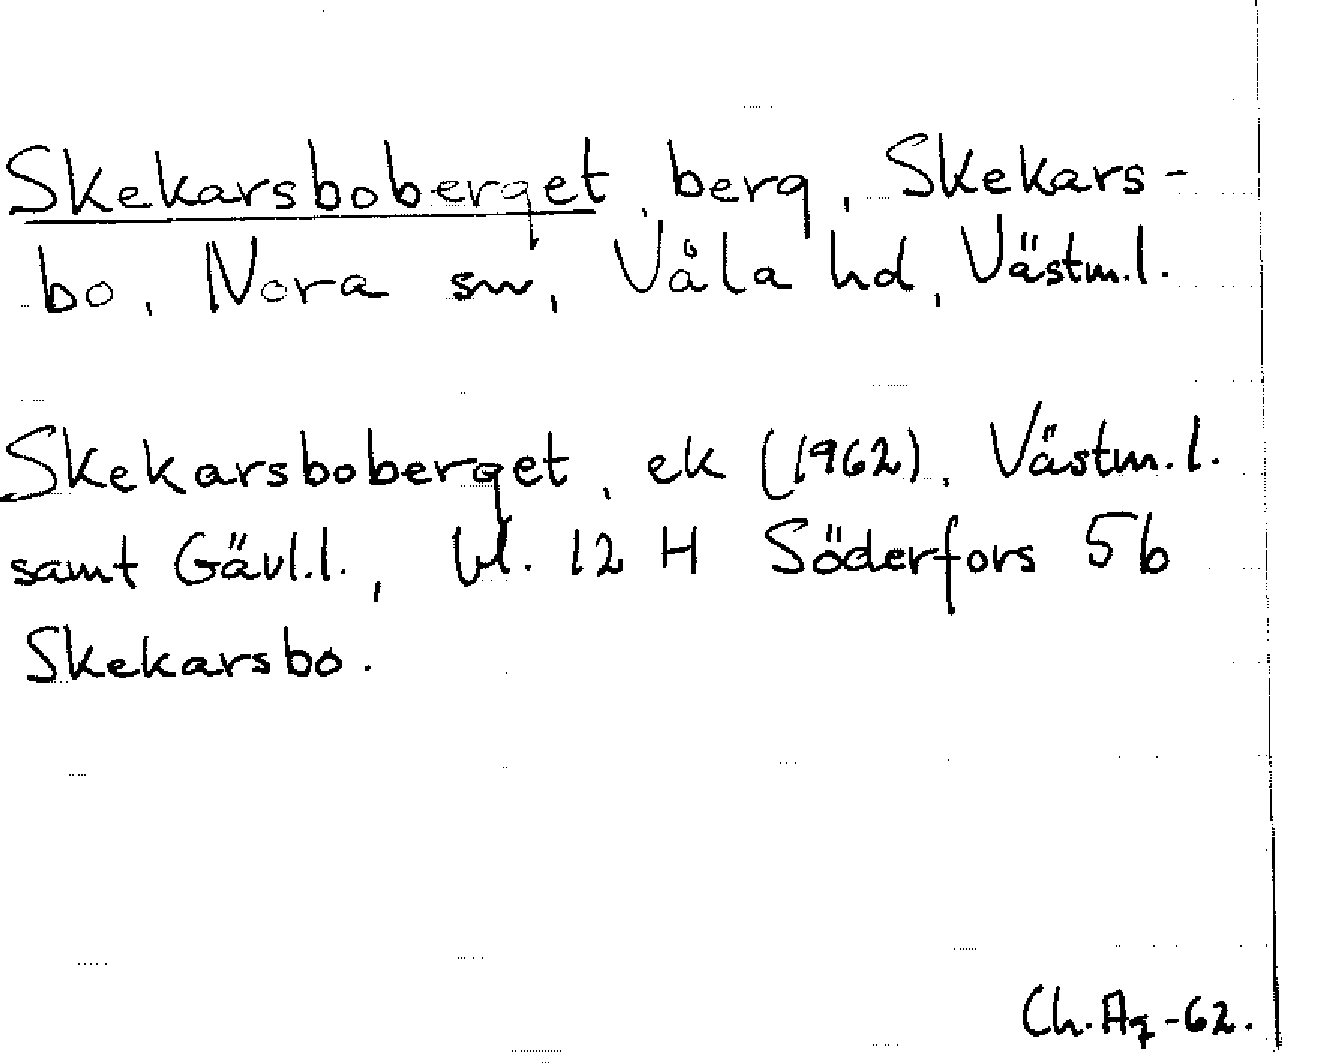 Skekarsboberget, berg, Skekars-
bo, Nora sn, Våla hd, Västm.l.
Skekarsboberget, ek (1962), Västm.l.
samt Gävl.l., bl. 12 H Söderfors 5b
Skekarsbo.
Ch.Ag-62.